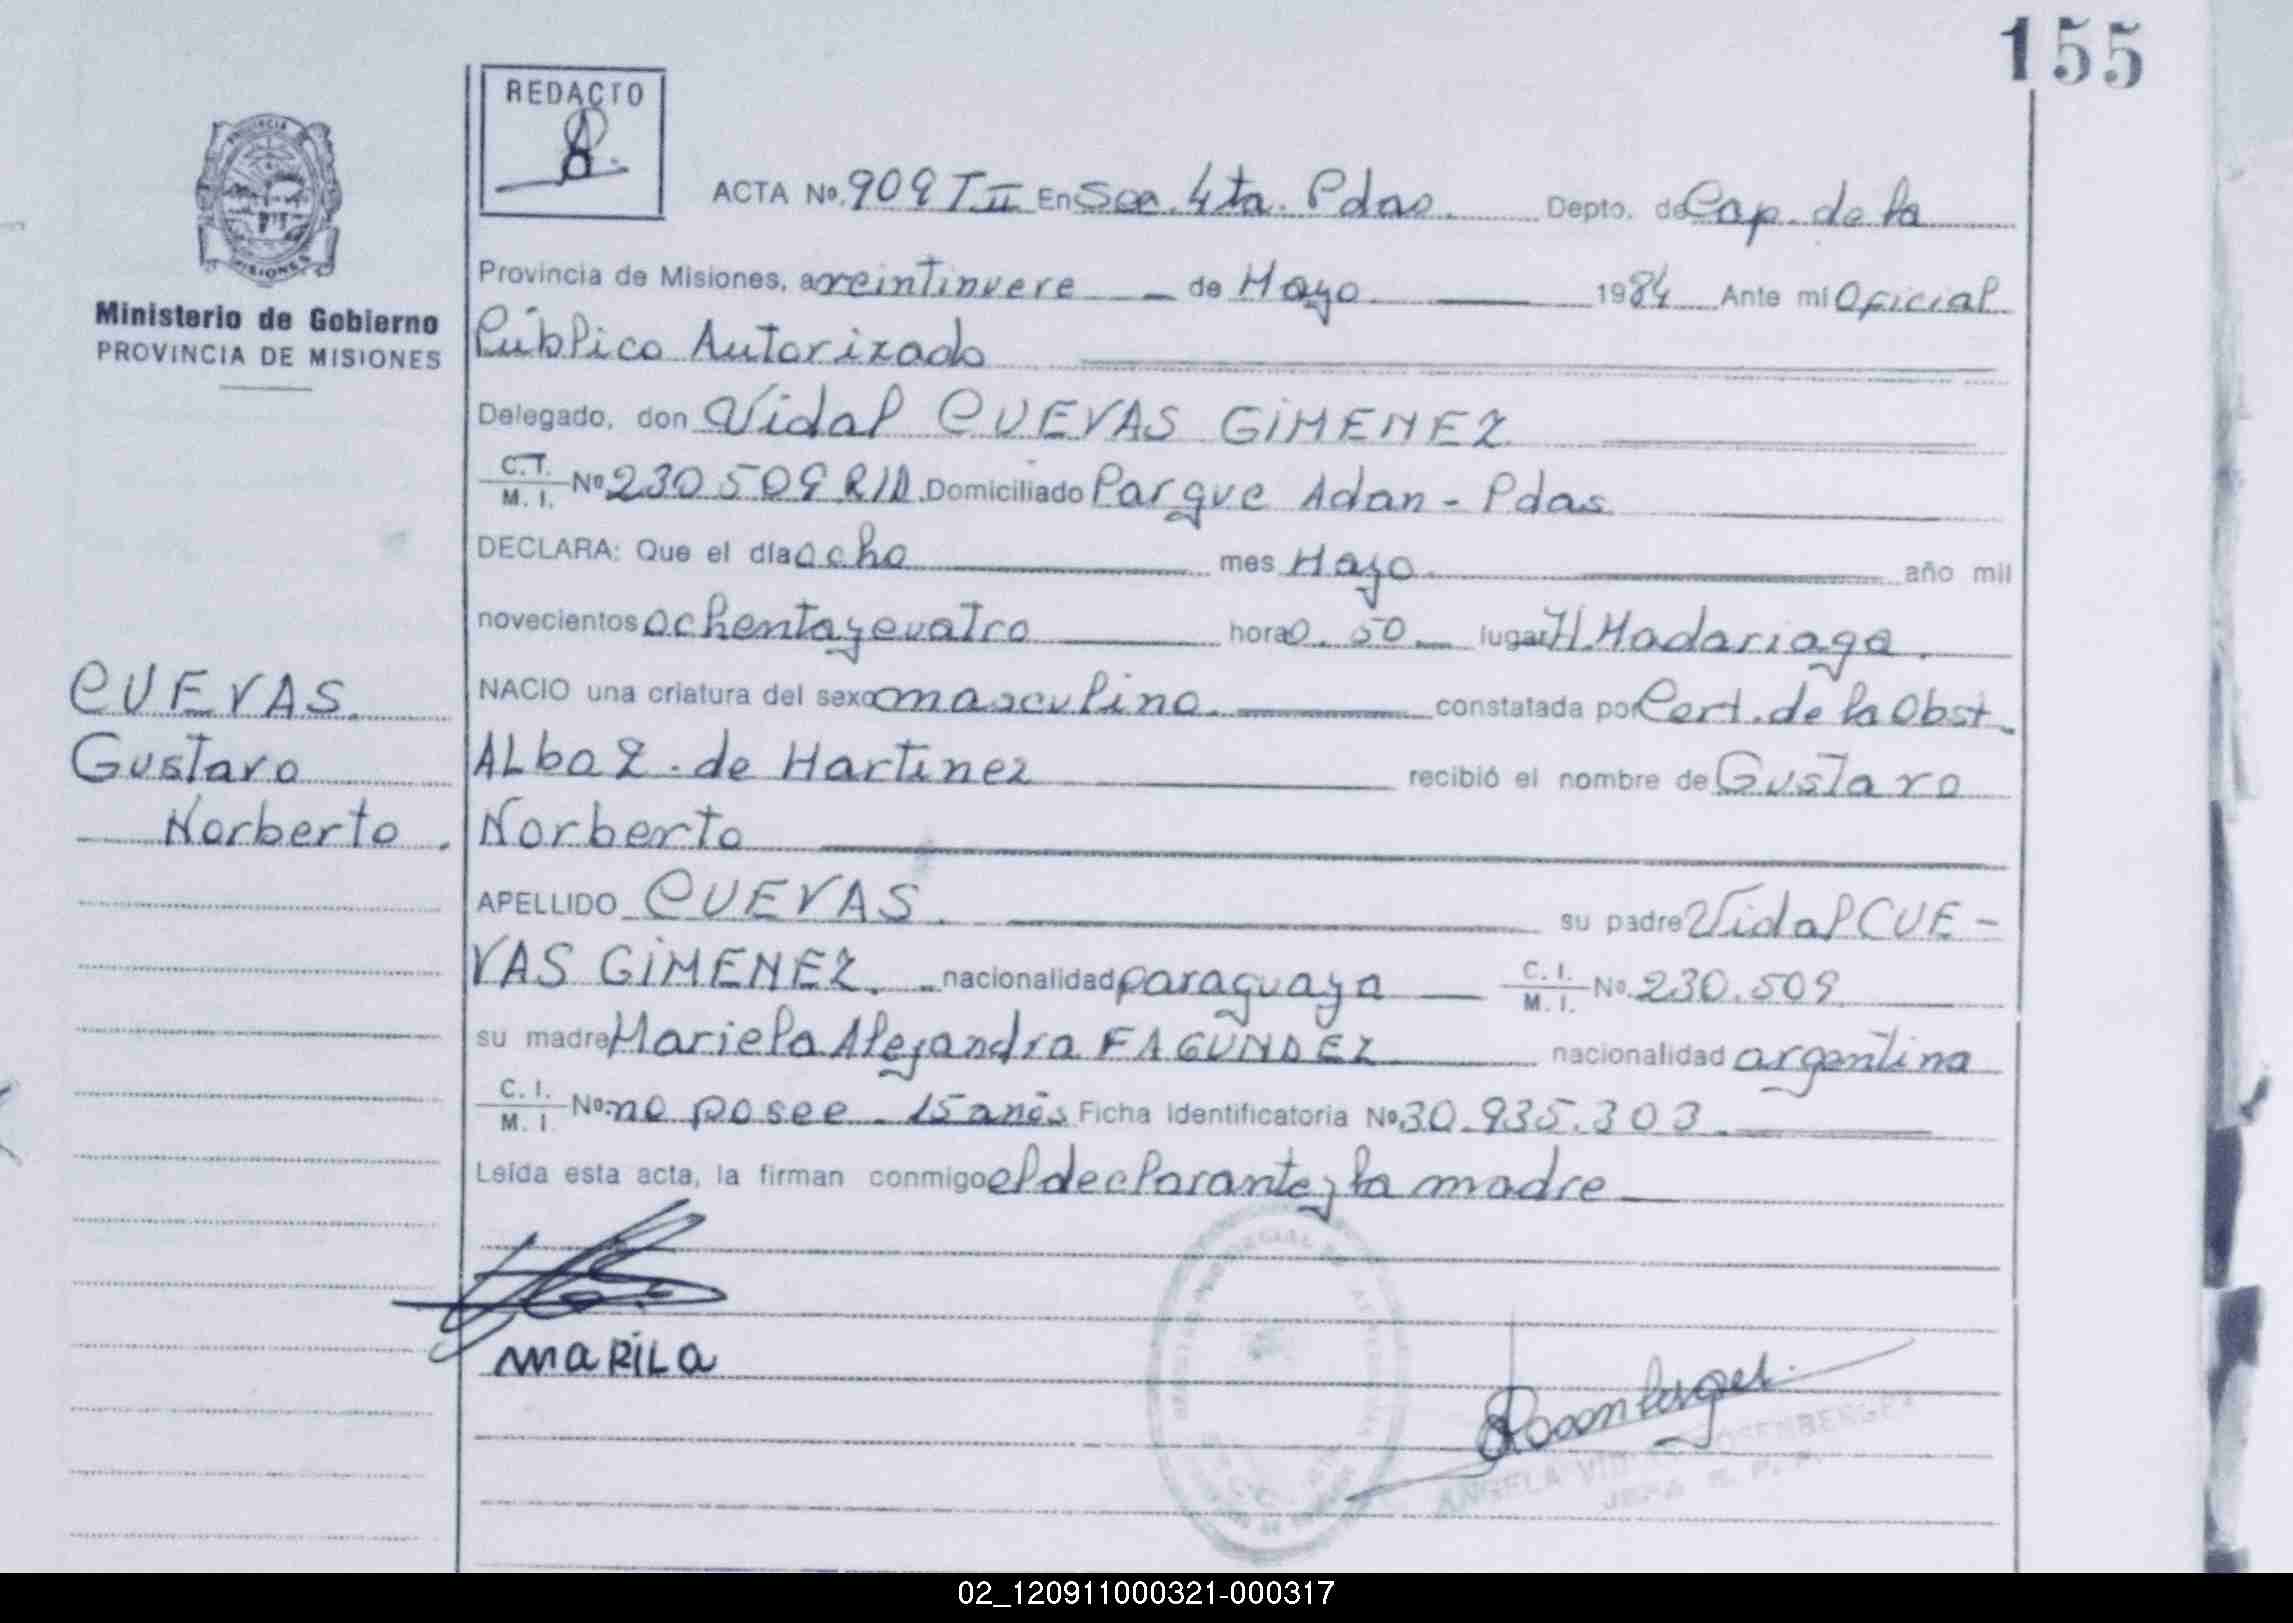 155
REDACTO
PROVINCIA DE
MISIONES
Ministerio de Gobierno
PROVINCIA DE MISIONES
ACTA Nº. 909 T II En Sec. 4ta. Pdas. Depto. de Cap. de la
Provincia de Misiones, a veintinueve de Mayo 1984 Ante mi Oficial
Público Autorizado
Delegado, don Vidal CUEVAS GIMENEZ
C.I. / M. I. Nº 230.509 R/D. Domiciliado Parque Adan - Pdas.
DECLARA: Que el día ocho mes Mayo año mil
novecientos ochenta y cuatro hora 0.50 lugar H. Madariaga.
NACIO una criatura del sexo masculino. constatada por Cert. de la Obst.
Alba Z. de Martinez recibió el nombre de Gustavo
Norberto
APELLIDO CUEVAS. su padre Vidal CUE-
VAS GIMENEZ. nacionalidad paraguaya C. I. / M. I. Nº 230.509
su madre Mariela Alejandra FAGUNDEZ nacionalidad argentina
C. I. / M. I. Nº. no posee - 15 anõs Ficha Identificatoria Nº 30.935.303.
Leída esta acta, la firman conmigo el declarante y la madre
CUEVAS.
Gustavo
Norberto.
MARILA
ANGELA ROSENBERGER
JEFA
02_120911000321-000317